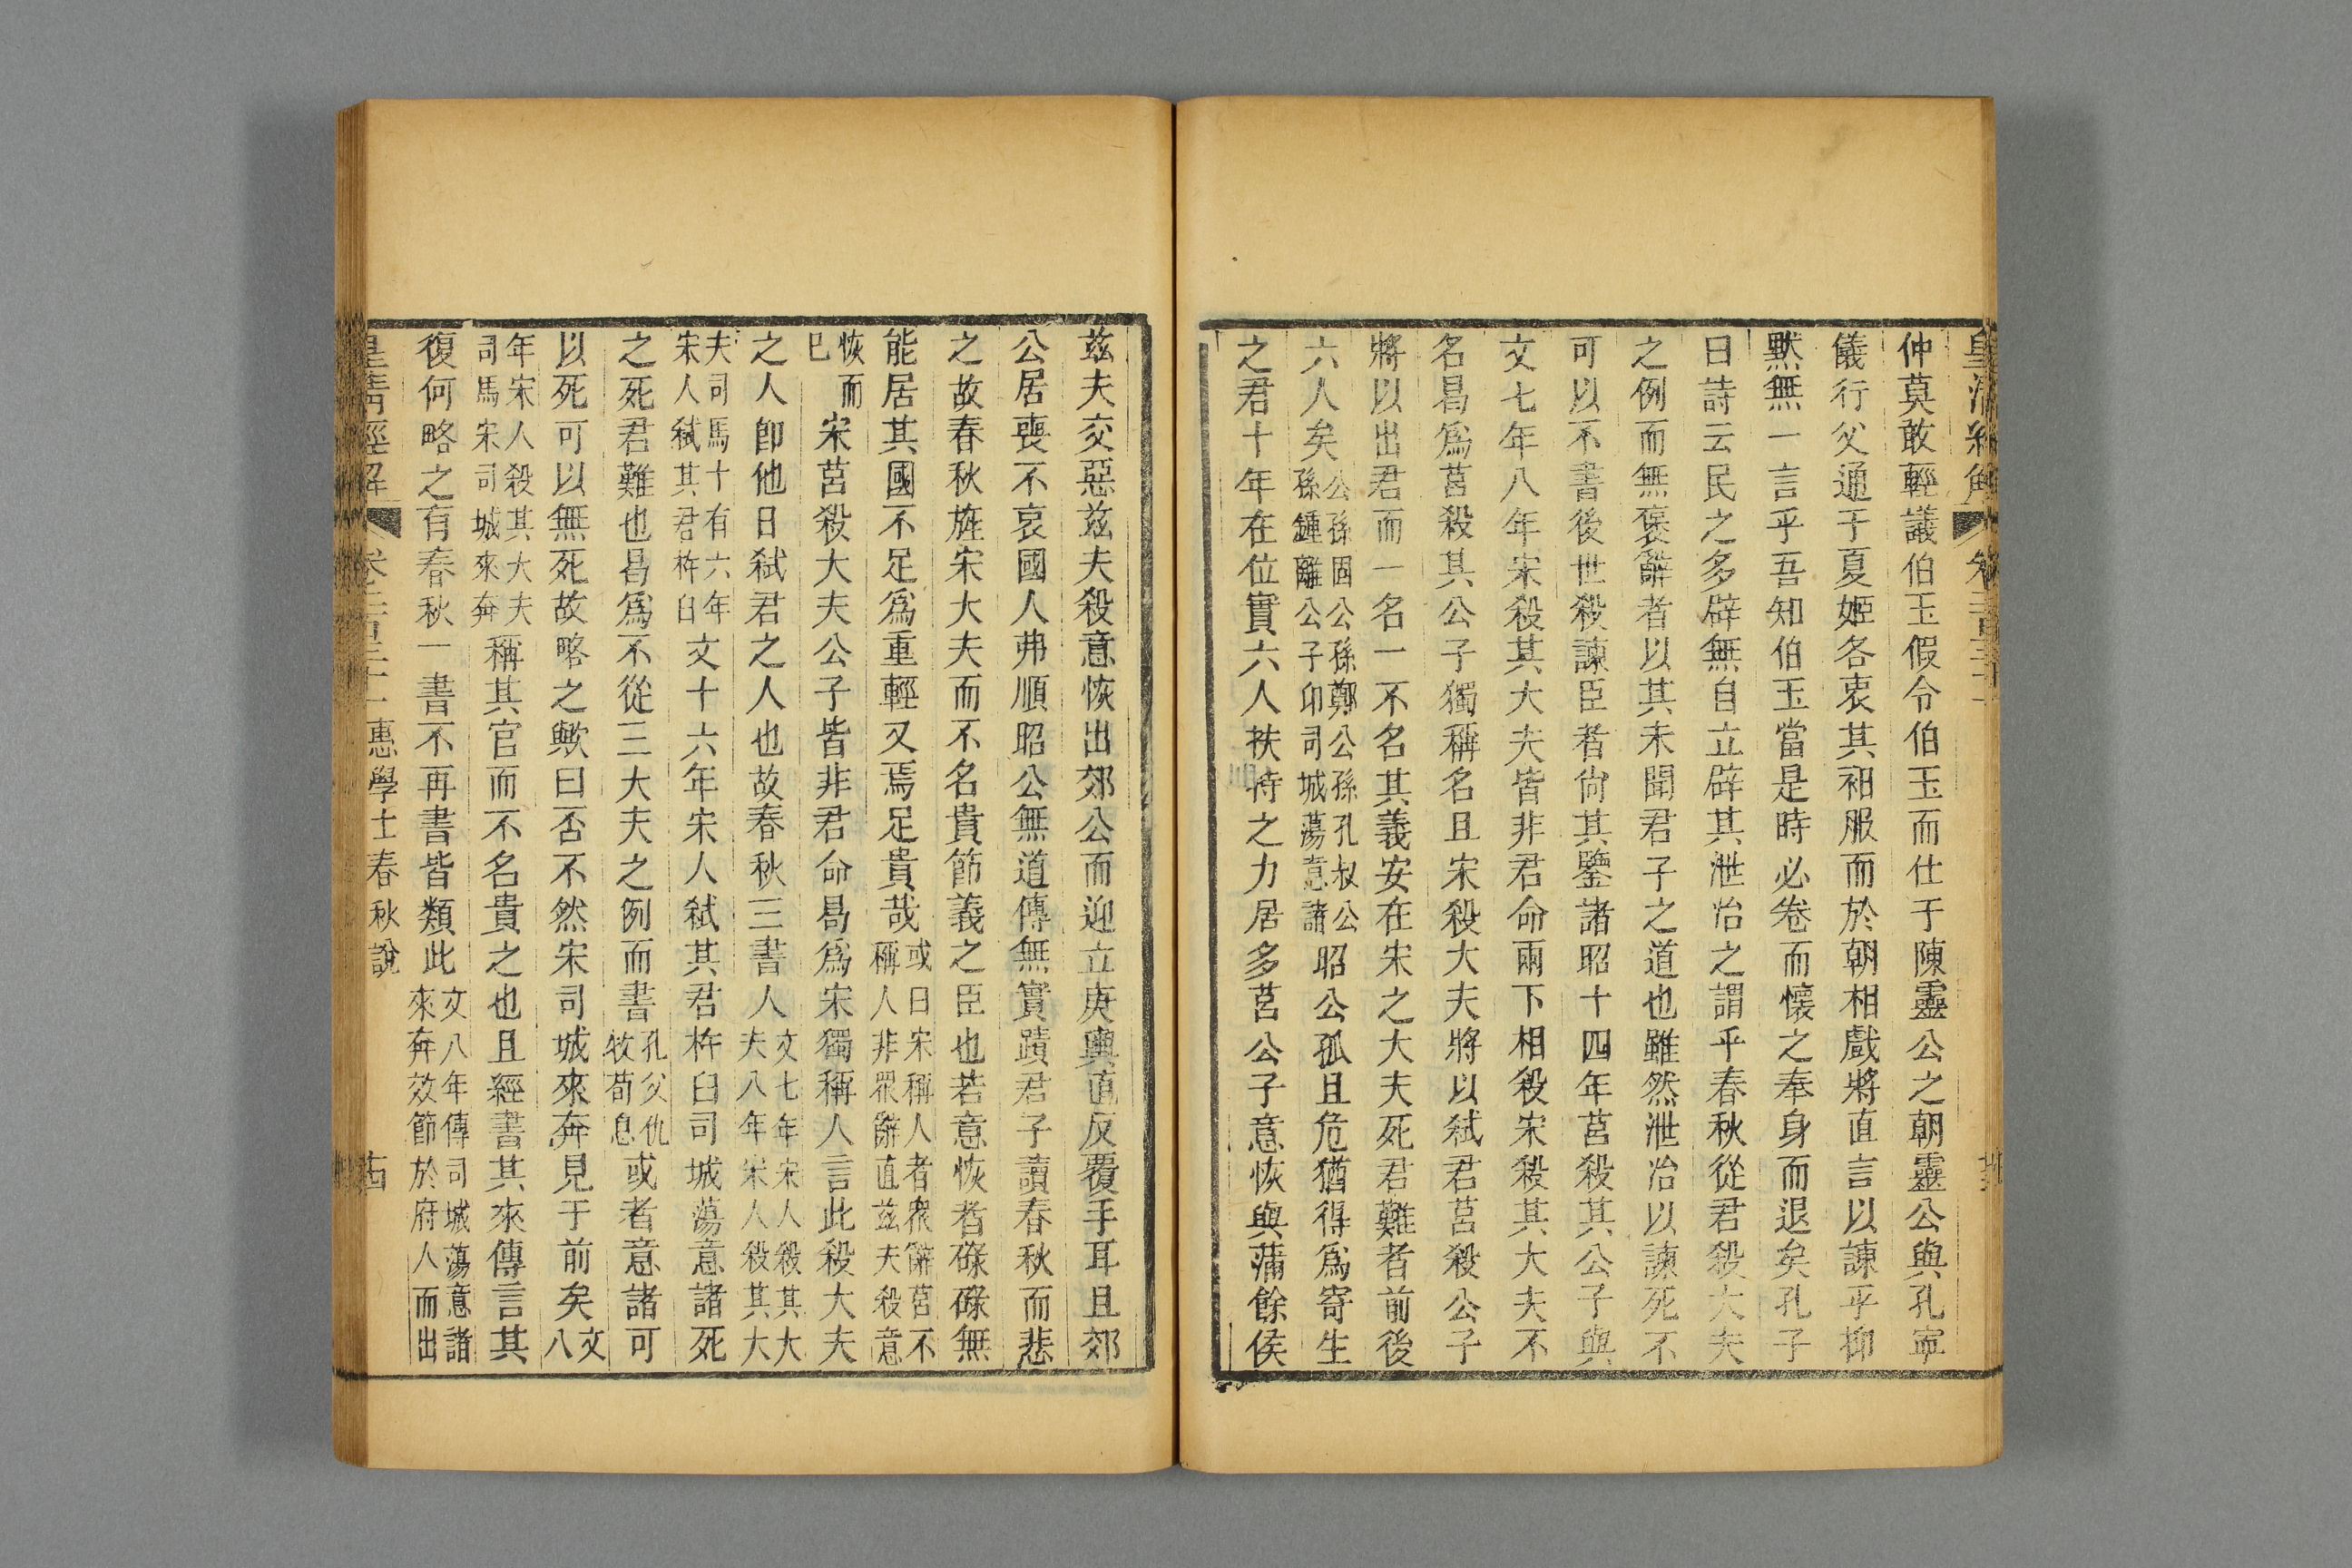 皇清經解
仲莫敢輕議伯玉假令伯玉而仕于陳靈公之朝靈公與孔寧
儀行父通于夏姬各衷其衵服而於朝相戲將直言以諫乎抑
默無一言乎吾知伯玉當是時必卷而懷之奉身而退矣孔子
曰詩云民之多辟無自立辟其泄冶之謂乎春秋從君殺大夫
之例而無褒辭者以其未聞君子之道也雖然泄冶以諫死不
可以不書後世殺諫臣者尙其鑒諸昭十四年莒殺其公子與
文七年八年宋殺其大夫皆非君命兩下相殺宋殺其大夫不
名曷爲莒殺其公子獨稱名且宋殺大夫將以弑君莒殺公子
將以出君而一名一不名其義安在宋之大夫死君難者前後
六人矣公孫固公孫鄭公孫孔叔公
孫鍾離公子卬司城蕩意諸昭公孤且危猶得爲寄生
之君十年在位實六人扶持之力居多莒公子意恢與蒲餘侯
茲夫交惡茲夫殺意恢出郊公而迎立庚輿直反覆手耳且郊
公居喪不哀國人弗順昭公無道傳無實蹟君子讀春秋而悲
之故春秋旌宋大夫而不名貴節義之臣也若意恢者碌碌無
能居其國不足爲重輕又焉足貴哉或曰宋稱人者衆辭莒不
稱人非眾辭直茲夫殺意
恢而
已宋莒殺大夫公子皆非君命曷爲宋獨稱人言此殺大夫
之人卽他日弑君之人也故春秋三書人文七年宋人殺其大
夫八年宋人殺其大
夫司馬十有六年
宋人弑其君杵臼文十六年宋人弑其君杵臼司城蕩意諸死
之死君難也曷爲不從三大夫之例而書孔父仇
牧荀息或者意諸可
以死可以無死故略之歟曰否不然宋司城來奔見于前矣文
八
年宋人殺其大夫
司馬宋司城來奔稱其官而不名貴之也且經書其來傳言其
復何略之有春秋一書不再書皆類此文八年傳司城蕩意諸
來奔效節於府人而出
皇清經解
惠學士春秋說